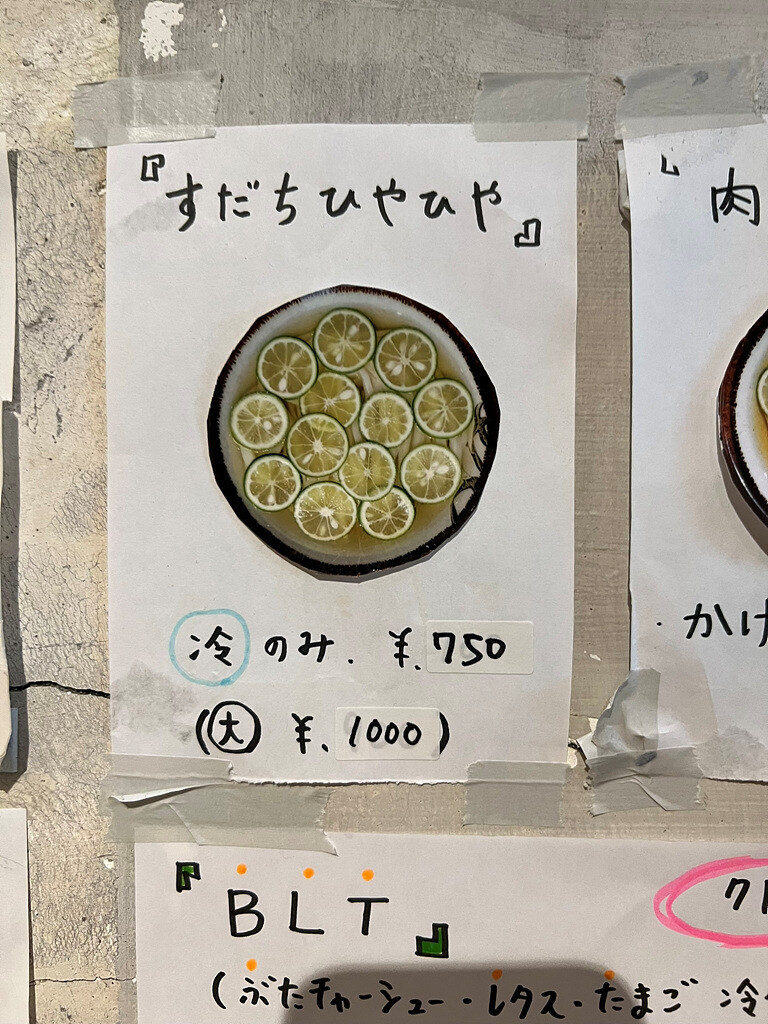 『すだちひやひや』
冷のみ. ¥.750
(大 ¥.1000)
肉
・かけ
『BLT』
(ぶたチャーシュー・レタス・たまご 冷